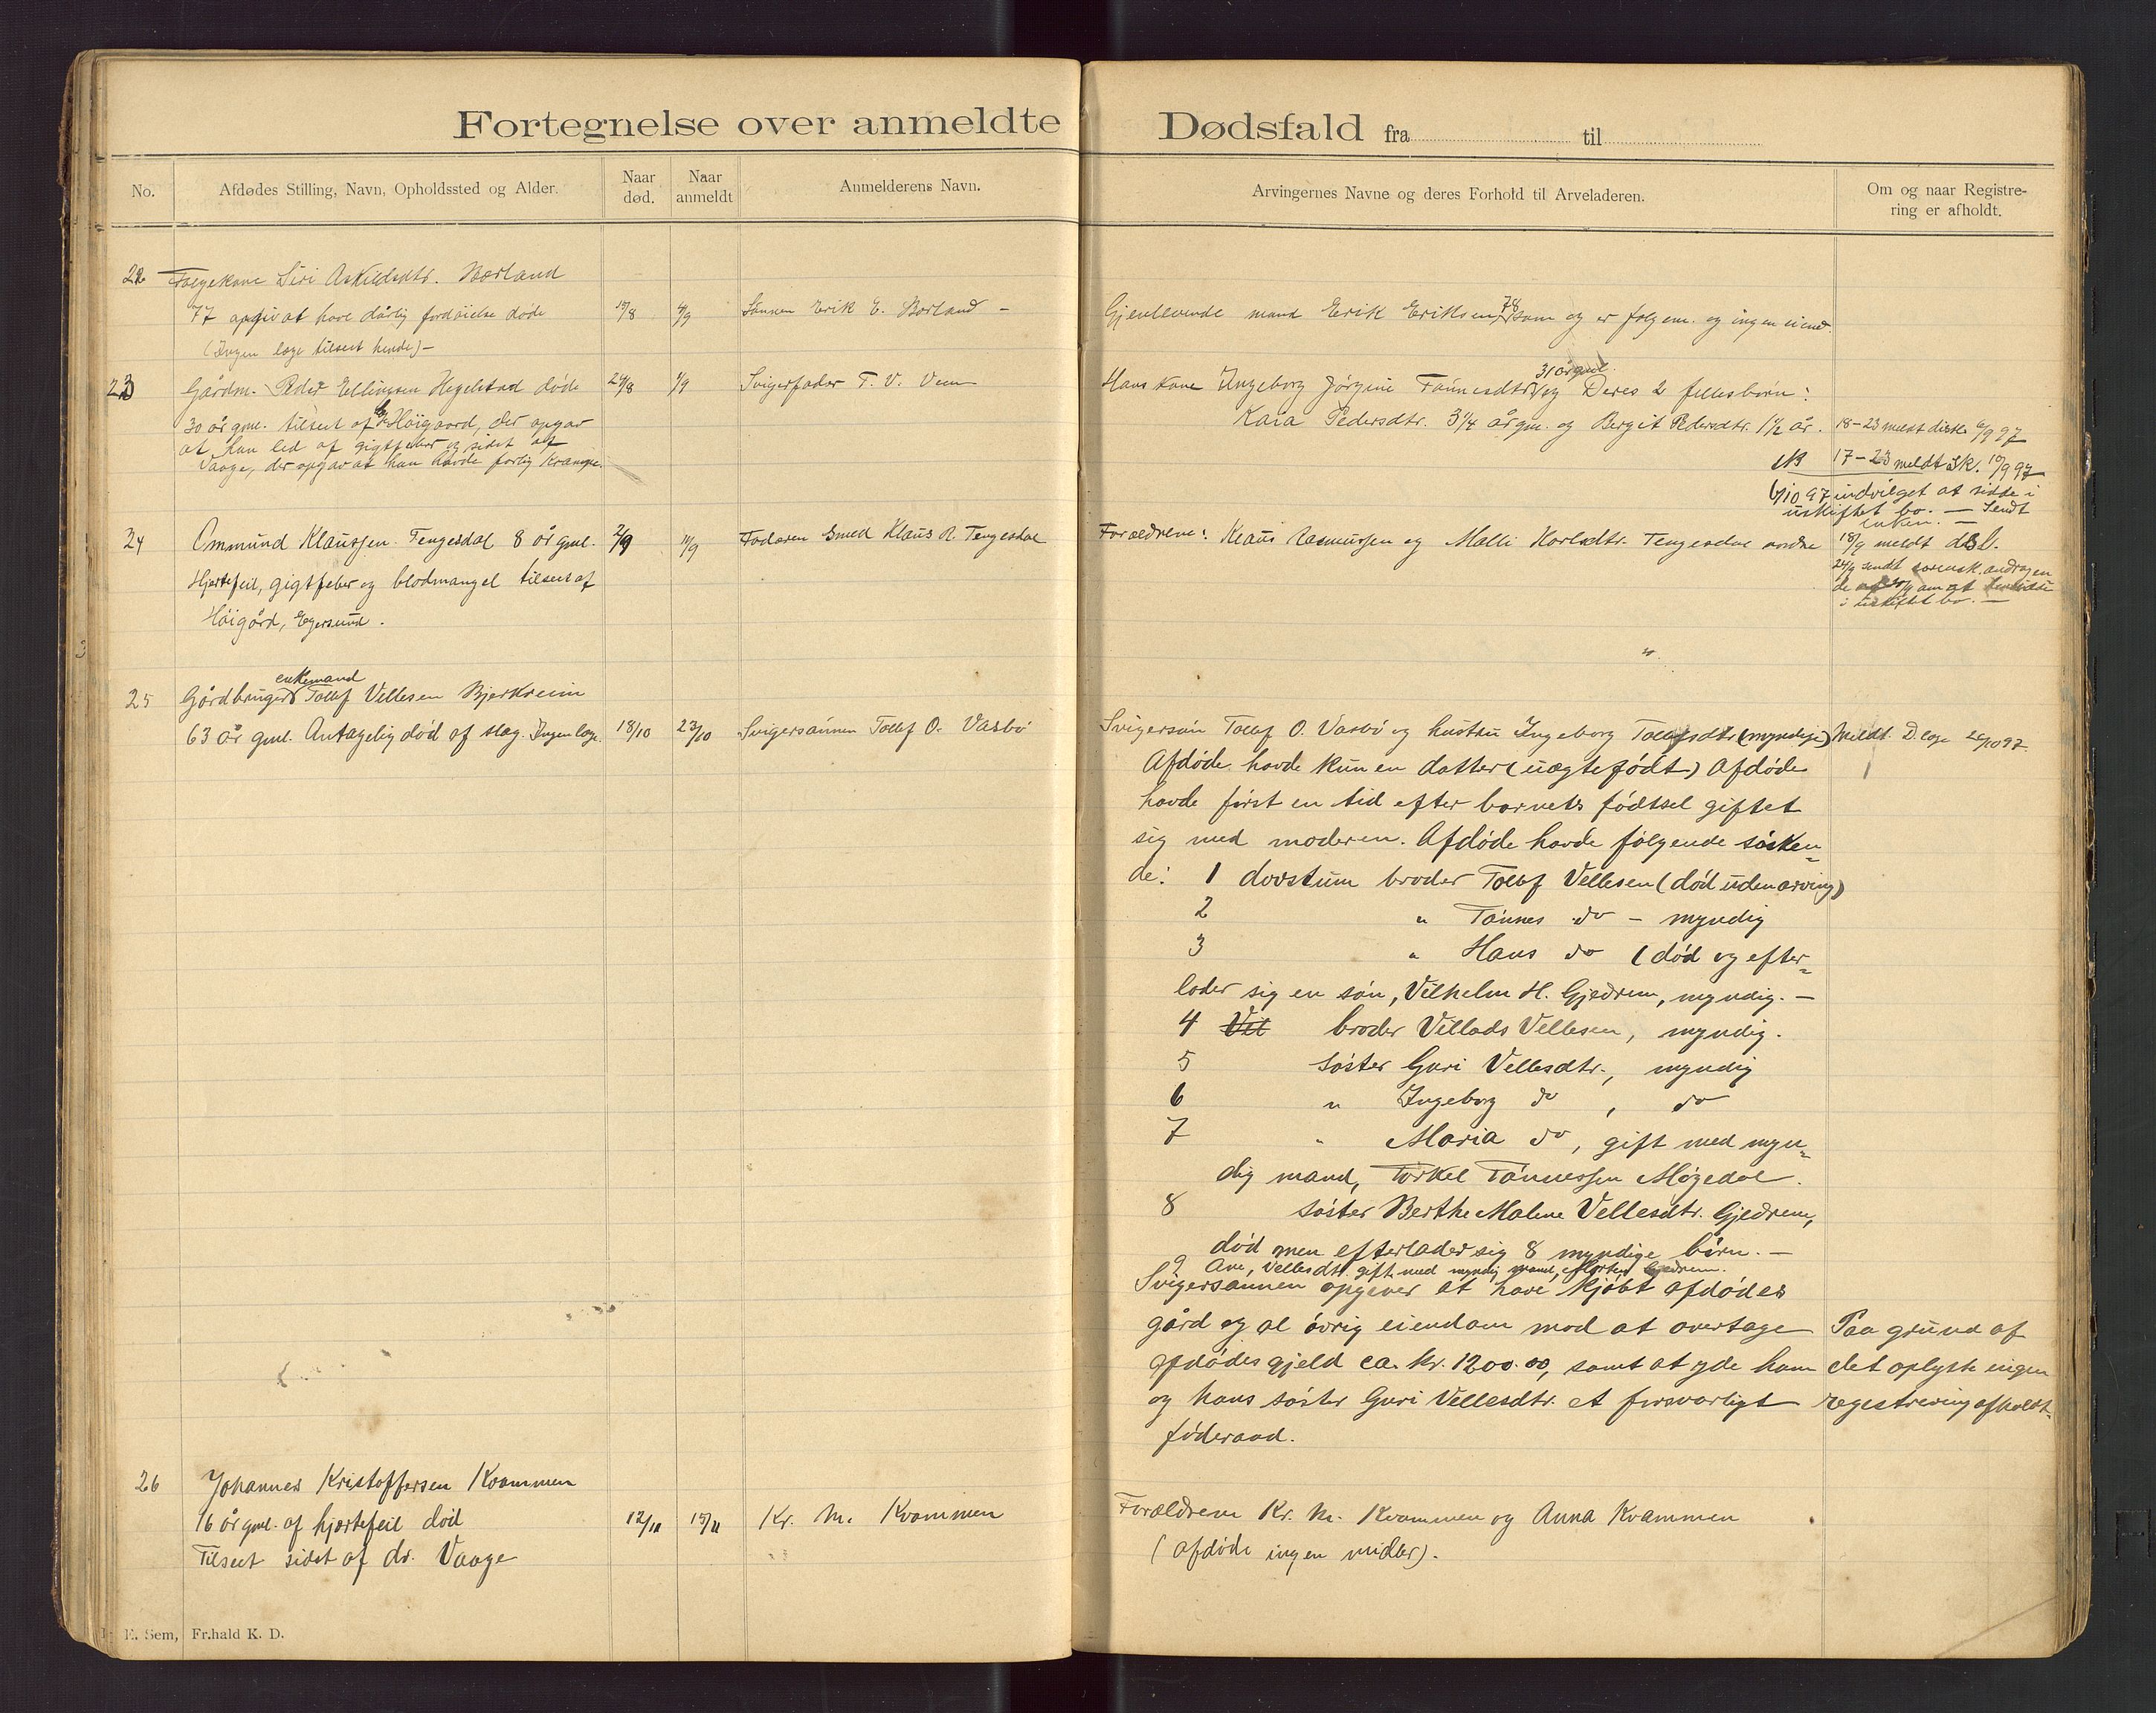 Fortegnelse over anmeldte Dødsfald fra til
No.
Afdødes Stilling, Navn, Opholdssted og Alder.
Naar død.
Naar anmeldt
Anmelderens Navn.
Arvingernes Navne og deres Forhold til Arveladeren.
Om og naar Registrering er afholdt.
22 Følgekone Siri Askildsdtr.
77 at have dårlig fordöielse døde 15/8 4/9 Sönnen Erik E. - Gjenlevende mand Erik Eriksen 78 som og er følgem. og ingen eiend.
(Ingen læge tilseet hende) -
23 Gårdm. Peder Ellingsen Hegelstad døde 24/8 1/9 Svigerfader T. V. Veen Hans kone Ingeborg Jörgine Tönnesdtr 31 år gml. og Deres 2 fellesbørn:
30 år gml. tilseet af Höigaard, der opgav Kaia Pedersdtr. 3 1/4 år gm. og Bergit Pedersdtr. 1 1/2 år. 18-23 meldt 6/9 97
at han led af gigtfeber og sidst af
Vaage, der opgav at han havde krampe. 17-23 meldt Sk. 10/9 97
6/10 97 indvilget at sidde i
uskiftet bo. - Sendt
enken. -
24 Ommund Klaussen Tengesdal 8 år gml. 2/9 11/9 Faderen Smed Klaus R. Tengesdal Forældrene: Klaus Rasmussen og Malli Karlsdtr. Tengesdal nordre 18/9 meldt
Hjertefeil, gigtfeber og blodmangel tilseet af 24/9 sendt
Höigård, Egersund.
i uskiftet bo. -
25 Gårdbruger enkemand Tollef Vellesen Bjerkreim
63 år gml. Antagelig död af slag. Ingen læge 18/10 23/10 Svigersönnen Tollef O. Vasbö Svigersön Tollef O. Vasbö og hustru Ingeborg Tollefsdtr (myndige) Meldt. 97
Afdöde havde kun en datter (uægte födt) Afdöde
havde först en tid efter barnets fødtsel giftet
sig med moderen. Afdöde havde følgende sösken=
de: 1 dövstum broder Tollef Vellesen (död uden arving)
2 " Tönnes do - myndig
3 " Hans do (död og efter=
lader sig en sön, Vilhelm H. Gjedrem, myndig. -
4 Vil broder Villads Vellesen, myndig.
5 söster Guri Vellesdtr., myndig
6 " Ingeborg do, do
7 " Maria do, gift med myn=
dig mand, Torkel Tönnessen Møgedal.
8 söster Berthe Malene Vellesdtr. Gjedrem,
död men efterlader sig 8 myndige börn. -
9 Ane, Vellesdtr. gift med myndig mand, Morten Gjedrem.
Svigersønnen opgiver at have kjöbt afdødes
gård og al övrig eiendom mod at overtage Paa grund af
afdødes gjeld ca. kr. 1200.00, samt at yde ham det oplyste ingen
og hans söster Guri Vellesdtr. et forsvarligt regestrering afholdt.
föderaad.
26 Johannes Kristoffersen Kvammen
16 år gml. af hjertefeil död 12/11 15/11 Kr. M. Kvammen Forældrene Kr. M. Kvammen og Anna Kvammen
Tilseet sidst af dr. Vaage (afdöde ingen midler).
E. Sem, Fr.hald K. D.